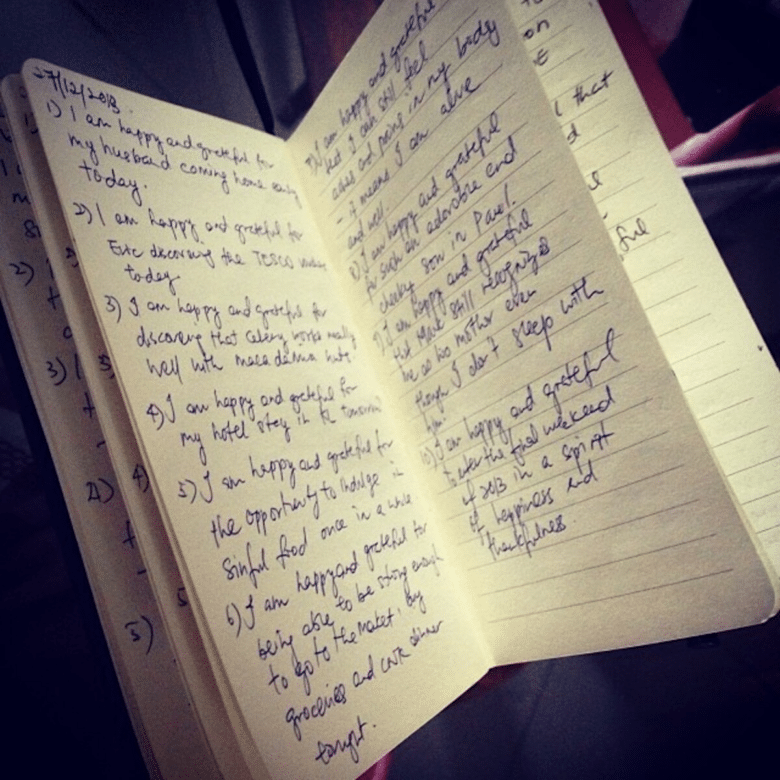 27/12/2013.
1) I am happy and grateful for
my husband coming home early
today.
2) I am happy and grateful for
discovering the TESCO
today.
3) I am happy and grateful for
discovering that celery works really
well with macadamia nuts.
4) I am happy and grateful for
my hotel stay in KL tomorrow
5) I am happy and grateful for
the opportunity to indulge in
sinful food once in a while
6) I am happy and grateful for
being able to be strong enough
to go to the market, buy
groceries and cook dinner
tonight.
7) I am happy and grateful
that I can still feel
aches and pains in my body
- it means I am alive
and well.
8) I am happy and grateful
for such an adorable and
cheeky son in
9) I am happy and grateful
that still recognizes
me as his mother even
though I don't sleep with
him.
10) I am happy and grateful
to enter the final weekend
of 2013 in a spirit
of happiness and
thankfulness.
on
that
ful
2)
3)
4)
5)
5)
4)
5